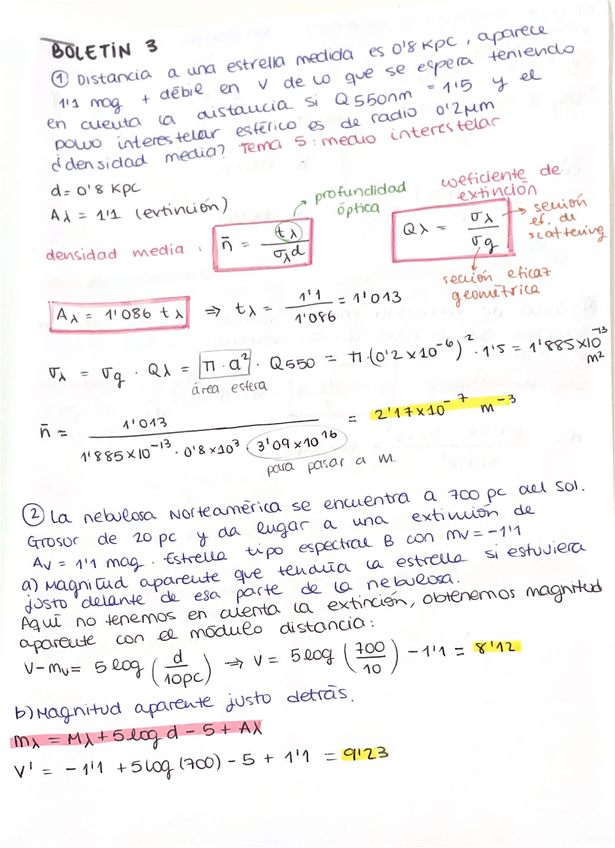 BOLETÍN 3
① Distancia a una estrella medida es 0'8 Kpc, aparece
1'1 mag + débil en V de lo que se espera teniendo
en cuenta la distancia si Q 550nm = 1'5 y el
polvo interestelar esférico es de radio 0'2 μm
¿densidad media? Tema 5: medio interestelar
d = 0'8 Kpc
Aλ = 1'1 (extinción)
profundidad óptica
coeficiente de extinción
densidad media: n̄ = tλ / σλ d
Qλ = σλ / σg
sección ef. de scattering
sección eficaz geométrica
Aλ = 1'086 tλ ⇒ tλ = 1'1 / 1'086 = 1'013
σλ = σg · Qλ = π · a² · Q550 = π · (0'2 × 10⁻⁶)² · 1'5 = 1'885 × 10⁻¹³ m²
área esfera
n̄ = 1'013 / 1'885 × 10⁻¹³ · 0'8 × 10³ · 3'09 × 10¹⁶ = 2'17 × 10⁻⁷ m⁻³
para pasar a m.
② La nebulosa Norteamérica se encuentra a 700 pc del Sol.
Grosor de 20 pc y da lugar a una extinción de
Av = 1'1 mag. Estrella tipo espectral B con mv = -1'1
a) Magnitud aparente que tendría la estrella si estuviera
justo delante de esa parte de la nebulosa.
Aquí no tenemos en cuenta la extinción, obtenemos magnitud
aparente con el módulo distancia:
V - mv = 5 log (d / 10pc) ⇒ V = 5 log (700 / 10) - 1'1 = 8'12
b) Magnitud aparente justo detrás.
mλ = Mλ + 5 log d - 5 + Aλ
V' = -1'1 + 5 log (700) - 5 + 1'1 = 9'23